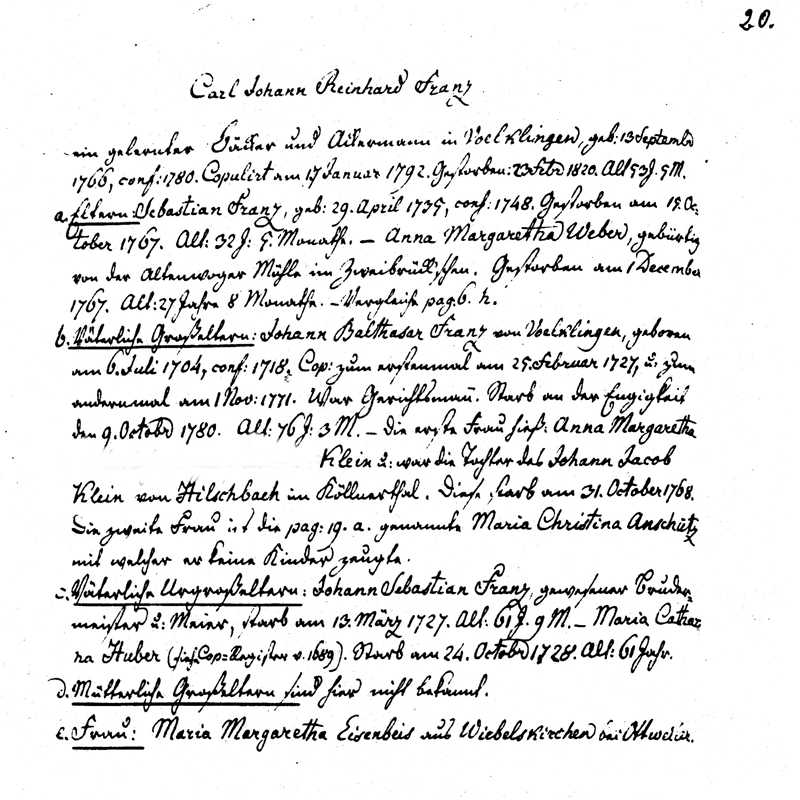 20.
Carl Johann Reinhard Franz
ein gelernter Bäcker und Ackermann in Voelklingen, geb: 13 Septembr
1766, conf: 1780. Copulirt am 17 Januar 1792. Gestorben: 23 Febr 1820. Alt 53 J. 5 M.
a. Eltern: Sebastian Franz, geb: 29. April 1735, conf: 1748. Gestorben am 15. Oc-
tober 1767. Alt: 32 J: 5. Monathe. – Anna Margaretha Weber, gebürtig
von der Altenwoger Mühle im Zweibrück'schen. Gestorben am 1 December
1767. Alt: 27 Jahre 8 Monathe. – Vergleiche pag. 6. h.
b. Väterliche Großeltern: Johann Balthasar Franz von Voelklingen, geboren
am 6. Juli 1704, conf: 1718. Cop: zum erstenmal am 25. Februar 1727, u: zum
andernmal am 1 Nov: 1771. War Gerichtsmañ. Starb an der Engigkeit
den 9. Octobr 1780. Alt: 76 J: 3 M. – Die erste Frau hieß: Anna Margaretha
Klein u: war die Tochter des Johann Jacob
Klein von Hilschbach im Köllnerthal. Diese starb am 31. October 1768.
Die zweite Frau ist die pag: 19. a. genannte Maria Christina Anschütz
mit welcher er keine Kinder zeugte.
c. Väterliche Urgroßeltern: Johann Sebastian Franz, gewesener Bruder-
meister u: Meier, starb am 13. März 1727. Alt: 61 J. 9 M. – Maria Catha-
na Huber (sieh Cop: Register v. 1689). Starb am 24. Octobr 1728. Alt: 61 Jahr.
d. Mütterliche Großeltern sind hier nicht bekannt.
e. Frau: Maria Margaretha Eisenbeis aus Wiebelskirchen bei Ottweiler.